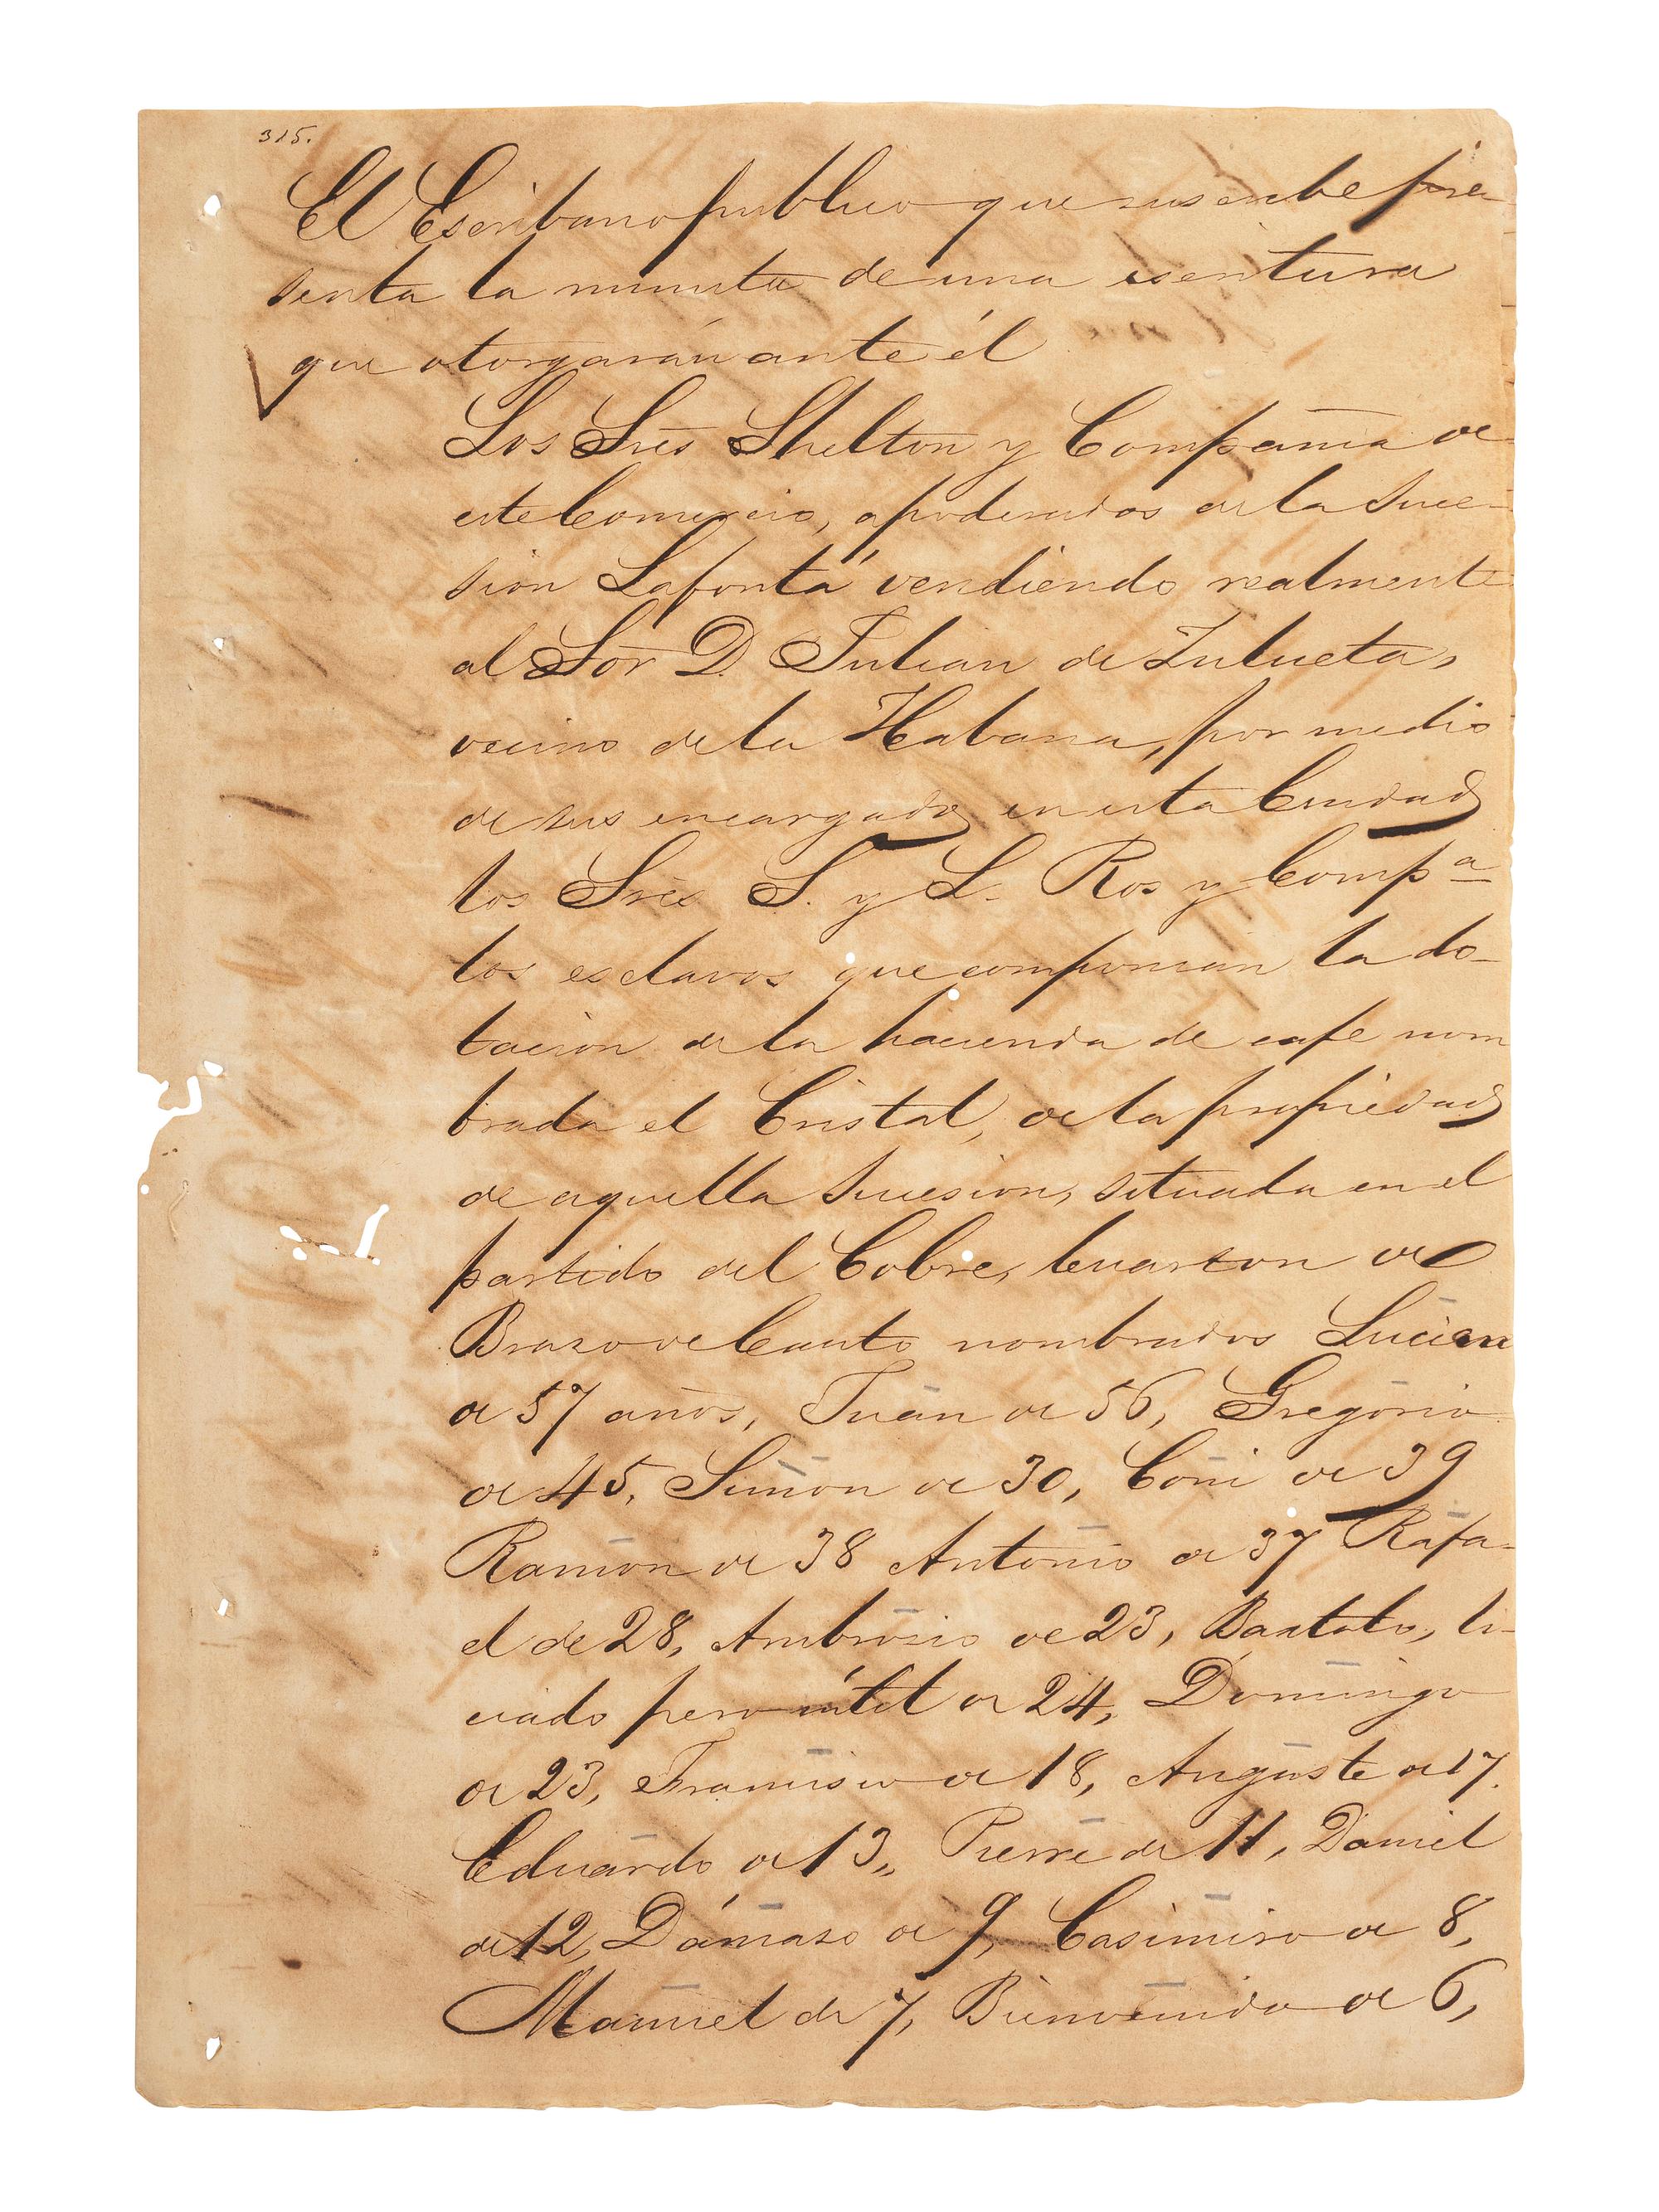 315.
El Escribano publico que suscribe pre-
senta la minuta de una escritura
que otorgarán ante él
Los Sres Shelton y Compania de
este Comercio, apoderados de la Suce-
sion Lafontá vendiendo realmente
al Sor D. Julian de Zulueta,
vecino de la Habana, por medio
de sus encargados en esta Ciudad
los Sres S. y L. Ros y Compª
los esclavos que componian la do-
tacion de la hacienda de cafe nom
brada el Cristal, de la propiedad
de aquella Sucesion, situada en el
partido del Cobre, Cuarton de
Brazo de Cauto nombrados Lucien
de 57 años, Juan de 56, Gregorio
de 45, Simon de 30, Coni de 39
Ramon de 38 Antonio de 37 Rafa-
el de 28, Ambrosio de 23, Bartolo, li-
ciado pero útil de 24, Domingo
de 23, Francisco de 18, Auguste de 17.
Eduardo de 13,, Pierre de 11, Daniel
de 12, Dámaso de 9, Casimiro de 8,
Manuel de 7, Bienvenido de 6,